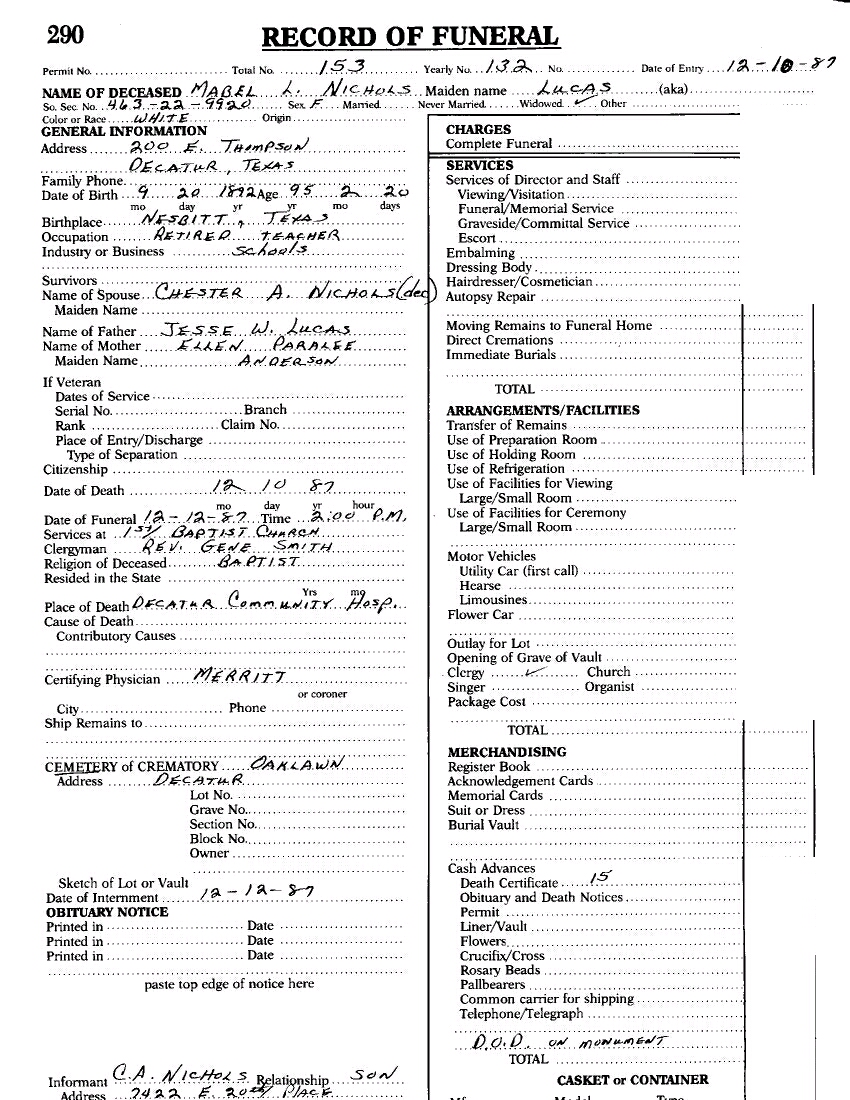 290
RECORD OF FUNERAL
Permit No. Total No. 153 Yearly No. 132 No. Date of Entry 12-10-87
NAME OF DECEASED MABEL L. NICHOLS Maiden name LUCAS (aka)
So. Sec. No. 463-22-9920 Sex F Married Never Married Widowed ✓ Other
Color or Race WHITE Origin
GENERAL INFORMATION
Address 200 E. THOMPSON
DECATUR, TEXAS
Family Phone
Date of Birth 9 20 1892 Age 95 2 20
mo day yr yr mo days
Birthplace NESBITT, TEXAS
Occupation RETIRED TEACHER
Industry or Business SCHOOLS
Survivors
Name of Spouse CHESTER A. NICHOLS (dec)
Maiden Name
Name of Father JESSE W. LUCAS
Name of Mother ELLEN PARALEE
Maiden Name ANDERSON
If Veteran
Dates of Service
Serial No. Branch
Rank Claim No.
Place of Entry/Discharge
Type of Separation
Citizenship
Date of Death 12 10 87
mo day yr hour
Date of Funeral 12-12-87 Time 2:00 P.M.
Services at 1st BAPTIST CHURCH
Clergyman REV. GENE SMITH
Religion of Deceased BAPTIST
Resided in the State
Yrs mo
Place of Death DECATUR COMMUNITY HOSP.
Cause of Death
Contributory Causes
Certifying Physician MERRITT
or coroner
City Phone
Ship Remains to
CEMETERY of CREMATORY OAKLAWN
Address DECATUR
Lot No.
Grave No.
Section No.
Block No.
Owner
Sketch of Lot or Vault
Date of Internment 12-12-87
OBITUARY NOTICE
Printed in Date
Printed in Date
Printed in Date
paste top edge of notice here
Informant C.A. NICHOLS Relationship SON
Address 7422 E. 20th PLACE
CHARGES
Complete Funeral
SERVICES
Services of Director and Staff
Viewing/Visitation
Funeral/Memorial Service
Graveside/Committal Service
Escort
Embalming
Dressing Body
Hairdresser/Cosmetician
Autopsy Repair
Moving Remains to Funeral Home
Direct Cremations
Immediate Burials
TOTAL
ARRANGEMENTS/FACILITIES
Transfer of Remains
Use of Preparation Room
Use of Holding Room
Use of Refrigeration
Use of Facilities for Viewing
Large/Small Room
Use of Facilities for Ceremony
Large/Small Room
Motor Vehicles
Utility Car (first call)
Hearse
Limousines
Flower Car
Outlay for Lot
Opening of Grave of Vault
Clergy ✓ Church
Singer Organist
Package Cost
TOTAL
MERCHANDISING
Register Book
Acknowledgement Cards
Memorial Cards
Suit or Dress
Burial Vault
Cash Advances
Death Certificate 15
Obituary and Death Notices
Permit
Liner/Vault
Flowers
Crucifix/Cross
Rosary Beads
Pallbearers
Common carrier for shipping
Telephone/Telegraph
D.O.D. ON MONUMENT
TOTAL
CASKET or CONTAINER